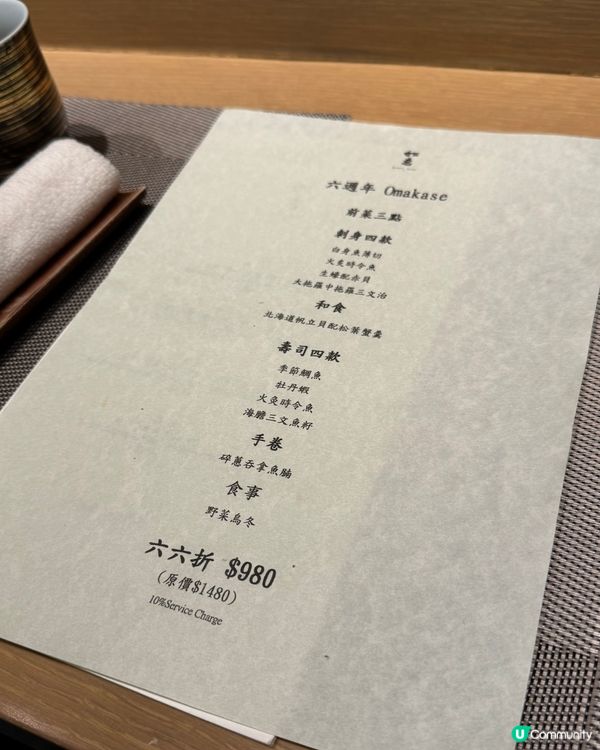 如
意
六週年 Omakase
前菜三點
刺身四款
白身魚薄切
火炙時令魚
生蠔配赤貝
大拖羅中拖羅三文治
和食
北海道帆立貝配松葉蟹羹
壽司四款
季節鯛魚
牡丹蝦
火炙時令魚
海膽三文魚籽
手卷
碎蔥吞拿魚腩
食事
野菜烏冬
六六折 $980
(原價$1480)
10%Service Charge
U Community